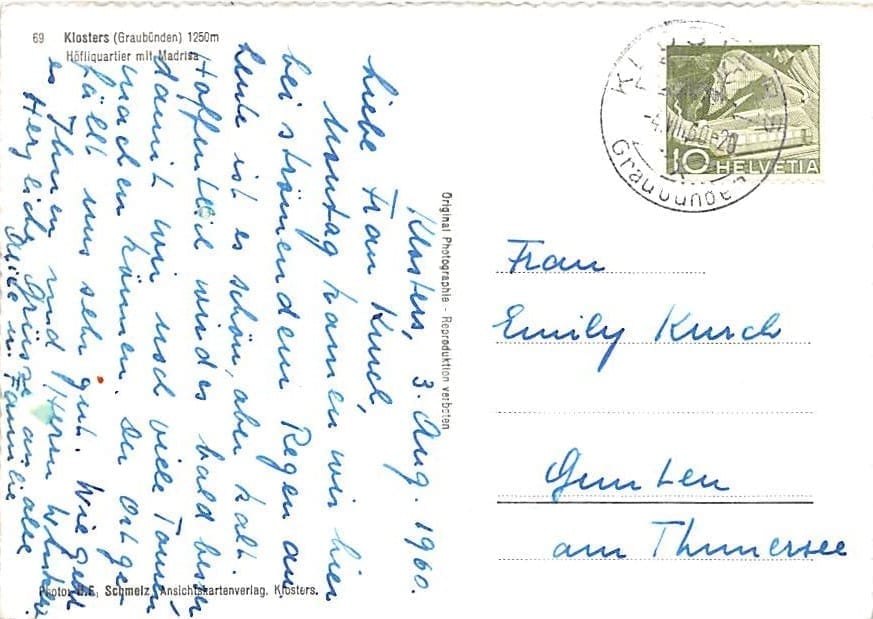 69 Klosters (Graubünden) 1250m
Höfliquartier mit Madrisa
Klosters, 3. Aug. 1960.
Liebe Frau Kusch,
Montag kamen wir hier
bei strömendem Regen an
heute ist es schön, aber kalt.
Hoffentlich wird es bald besser
damit wir noch viele Touren
machen können. Der Ort ge-
fällt uns sehr gut. Wie geht
es Ihnen und Herrn
Herzliche Grüsse an alle
u. Familie
Photo: Schmelz, Ansichtskartenverlag, Klosters.
Original Photographie - Reproduktion verboten
KLOSTERS
-4.VIII.60-20
Graubünden
10 HELVETIA
Frau
Emily Kusch
Gunten
am Thunersee